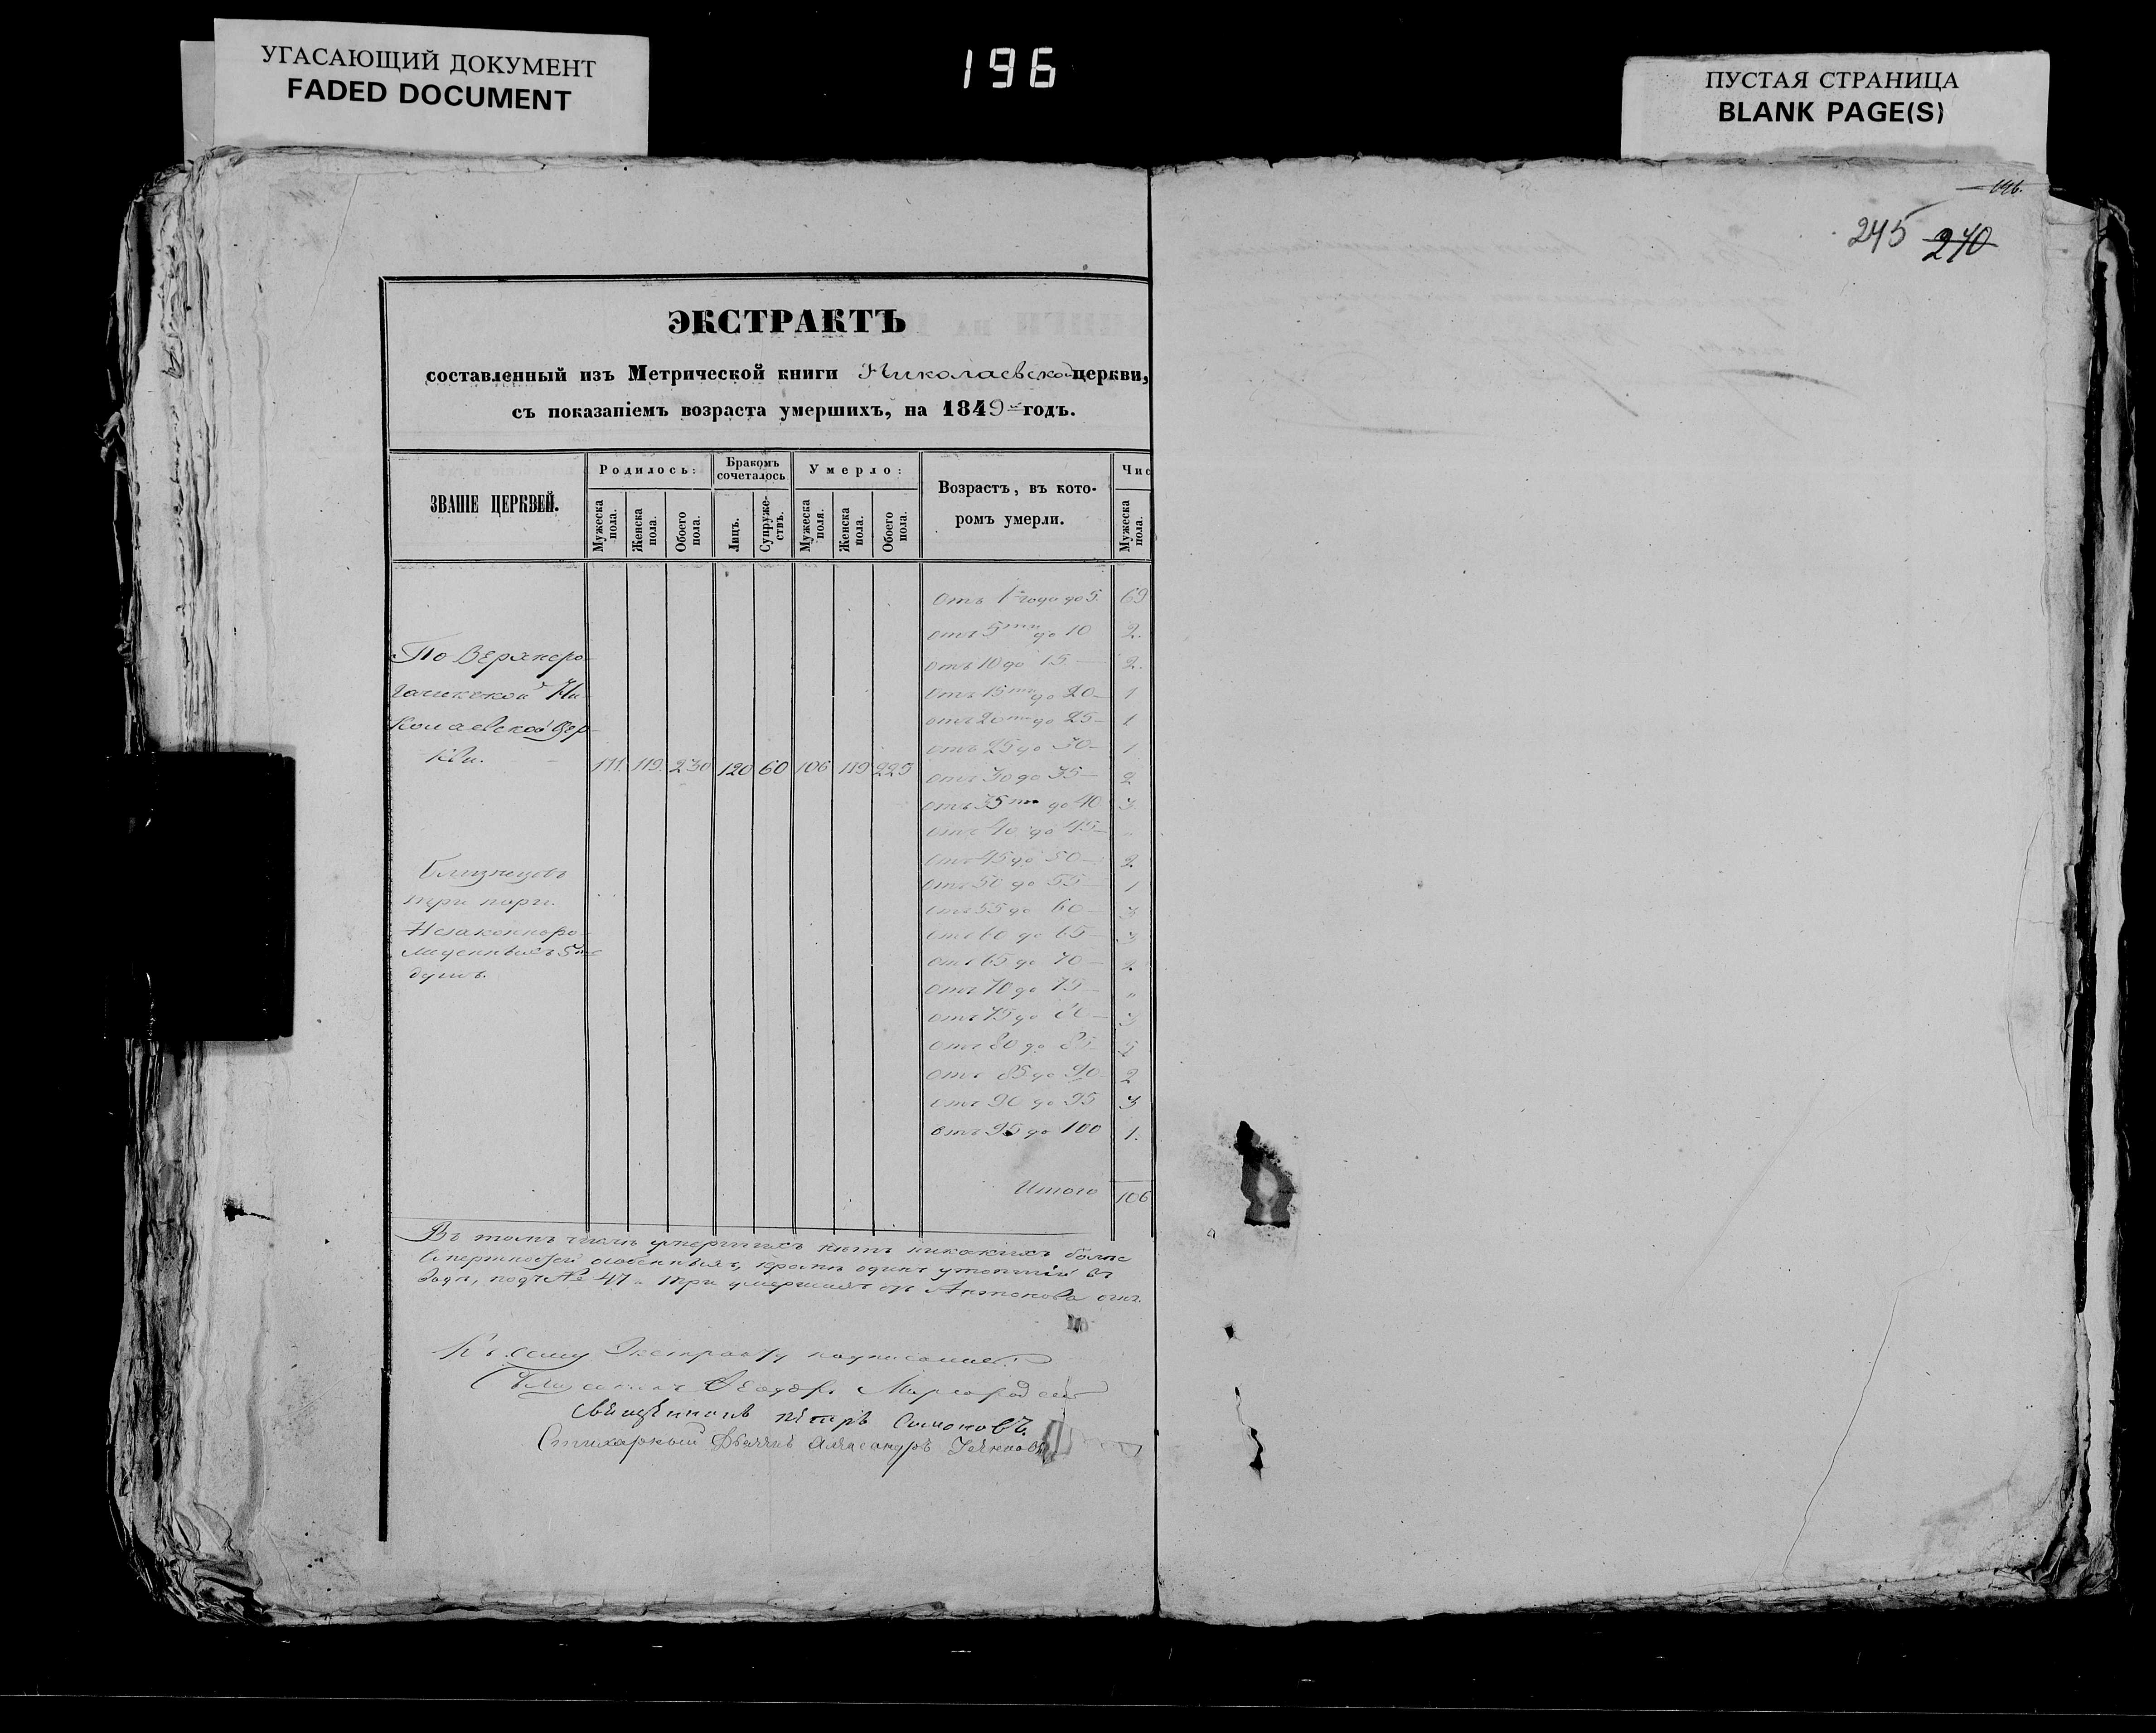 УГАСАЮЩИЙ ДОКУМЕНТ
FADED DOCUMENT
196
ПУСТАЯ СТРАНИЦА
BLANK PAGE(S)
146.
245 240
ЭКСТРАКТЪ
составленный изъ Метрической книги Николаевской церкви,
съ показаніемъ возраста умершихъ, на 1849й годъ.
ЗВАНІЕ ЦЕРКВЕЙ.
Родилось:
Бракомъ сочеталось
Умерло:
Возрастъ, въ кото-
ромъ умерли.
Чис
Мужеска пола.
Женска пола.
Обоего пола.
Лицъ.
Супруже-ствъ.
Мужеска поля.
Женска пола.
Обоего пола.
Мужеска пола.
отъ 1го года до 5. 69
отъ 5ти до 10 2.
По Верхнеро-
отъ 10 до 15. — 2.
гачикской Ни-
отъ 15ти до 20 — 1
колаевской Цер-
отъ 20ти до 25 — 1
кви.
отъ 25 до 30 — 1
111. 119. 230 120 60 106 119 225
отъ 30 до 35 — 2
отъ 35ти до 40 3
отъ 40 до 45 — „
отъ 45 до 50 — 2
Близнецовъ
отъ 50 до 55 — 1
три пары.
отъ 55 до 60 — 3
Незаконноро-
отъ 60 до 65 — 3
жденныхъ 5ть
отъ 65 до 70 — 2
душъ.
отъ 70 до 75 — „
отъ 75 до 80 — 3
отъ 80 до 85 5
отъ 85 до 90 2
отъ 90 до 95 3
отъ 95 до 100 1.
Итого 106
Въ томъ числѣ умершихъ нѣтъ никакихъ болѣе
смертностей особенныхъ, кромѣ одинъ утопшій въ
водѣ, подъ № 47 и три умершихъ отъ Антонова огня.
Къ сему Экстракту подписались:
Ѳеодоръ Миргородскій
Священникъ Петръ Симоновъ.
Стихарный Дьячекъ Александръ